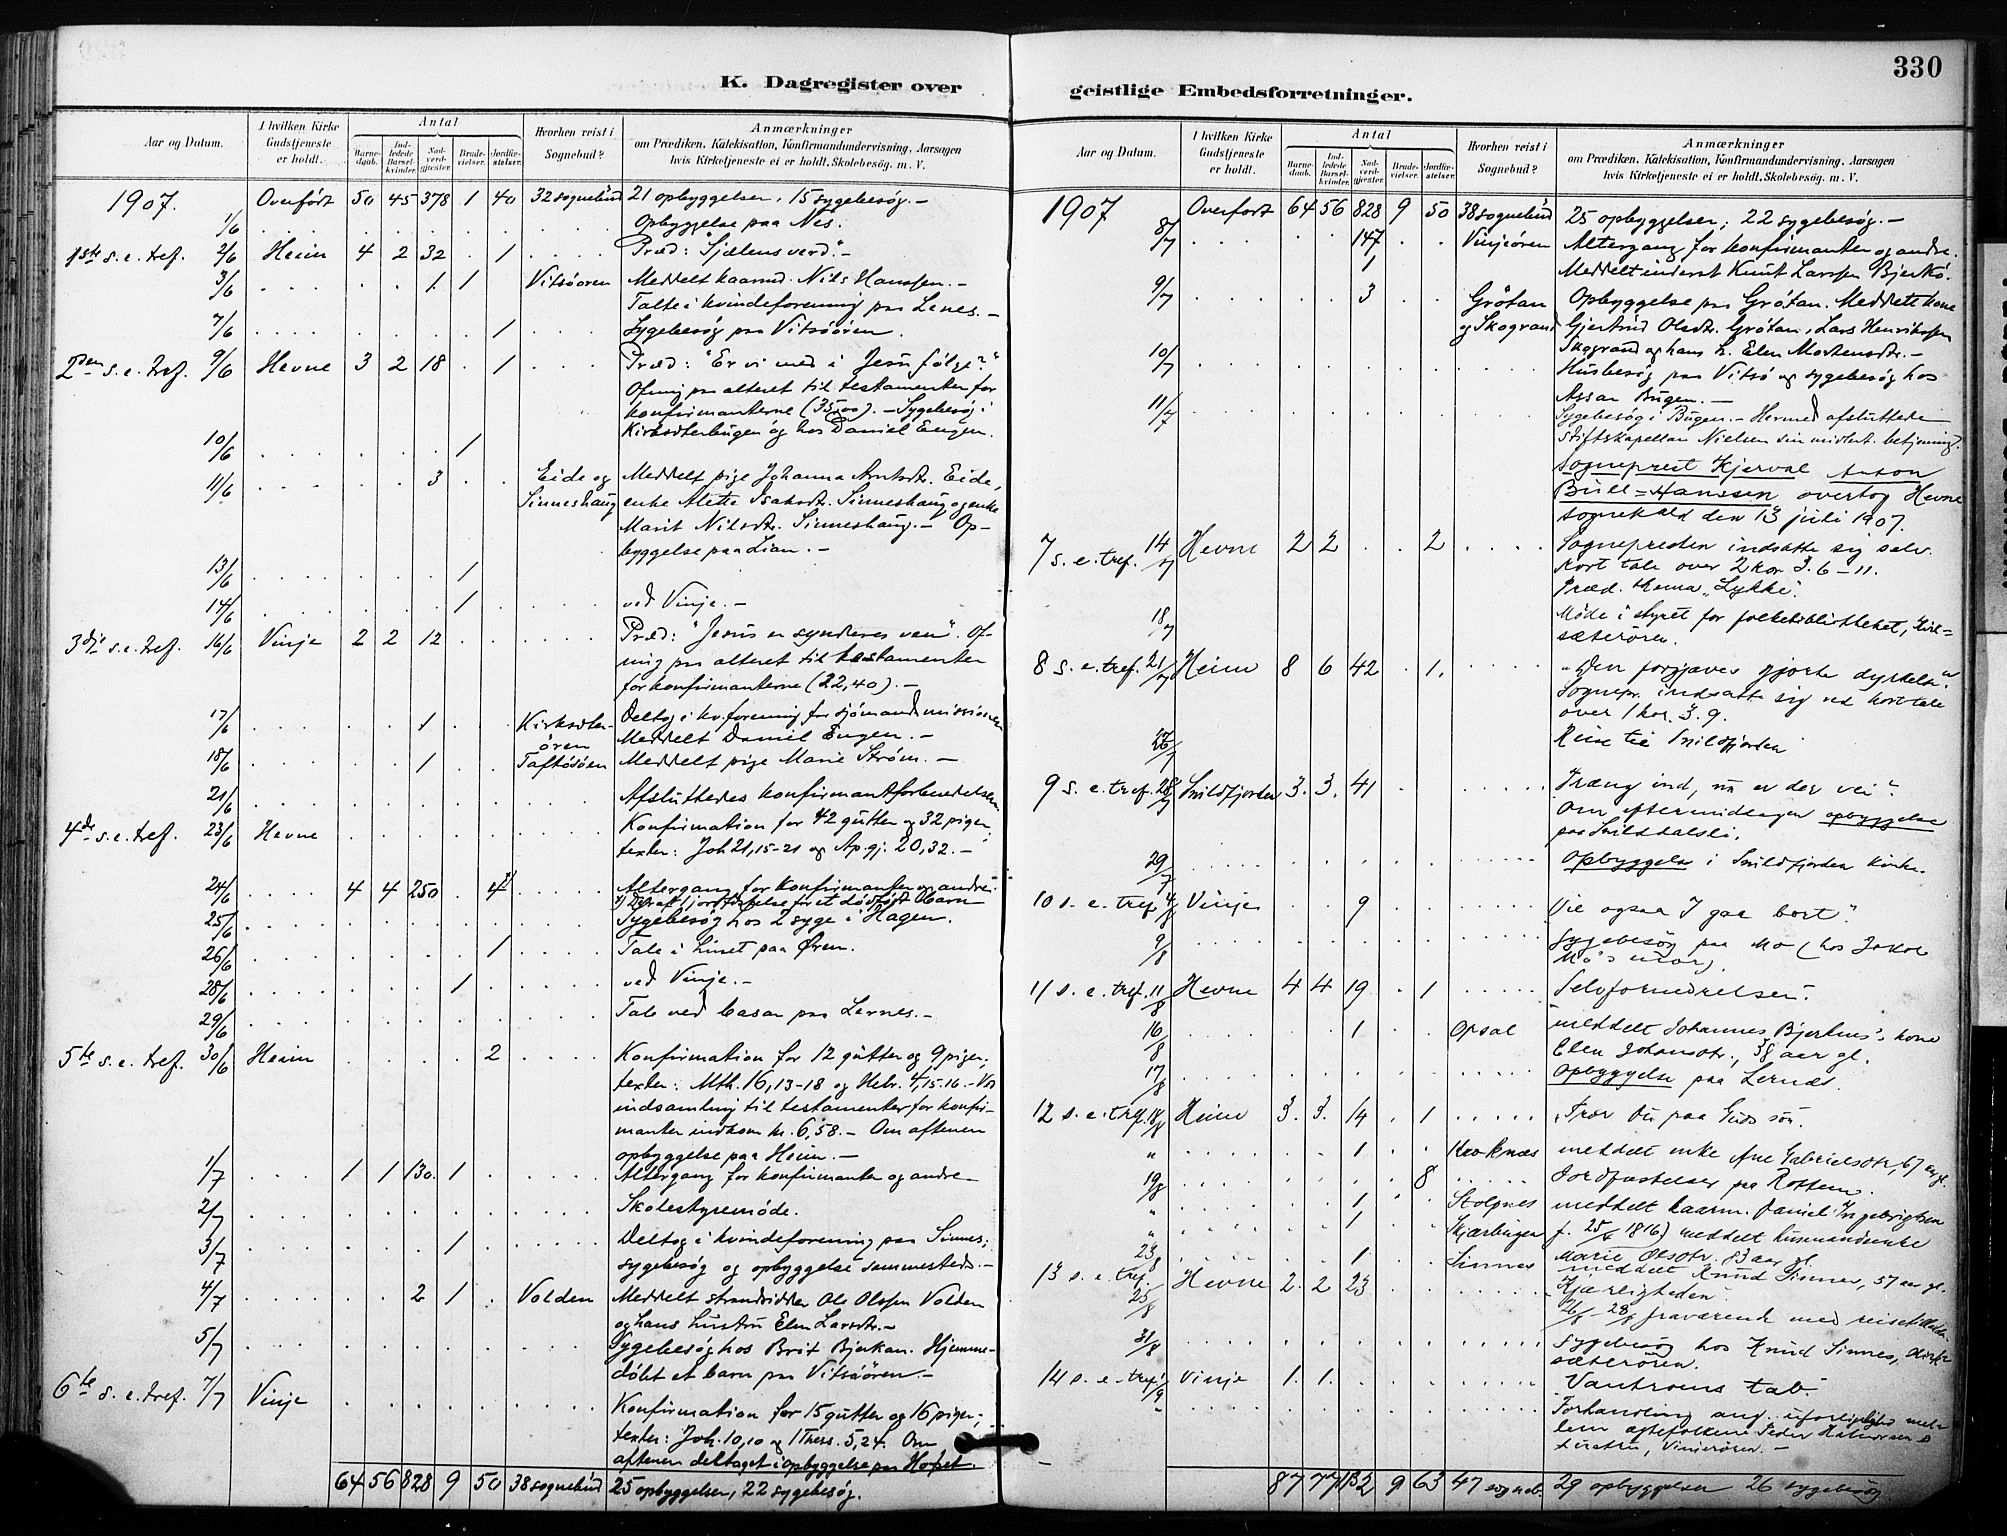 330
K. Dagregister over
geistlige Embedsforretninger.
Aar og Datum.
I hvilken Kirke Gudstjeneste er holdt.
Antal
Barnedaab.
Indledede Barselkvinder.
Nadverdgjæster.
Brudevielser.
Jordfæstelser.
Hvorhen reist i Sognebud?
Anmærkninger
om Prædiken, Katekisation, Konfirmandundervisning, Aarsagen
hvis Kirketjeneste ei er holdt, Skolebesøg. m. V.
1907. Overført 50 45 378 1 40 32 sognebud 21 opbyggelser, 15 sygebesøg. -
1/6 Opbyggelse paa Nes.
1ste s. e. tref. 2/6 Heim 4 2 32 1 Præd: "Sjælens verd". -
3/6 1 1 Vitsøøren Meddelt kaarmd. Nils Hanssen. -
Talte i kvindeforening paa Lenes. -
7/6 1 Sygebesøg paa Vitsøøren.
2den s. e. tref. 9/6 Hevne 3 2 18 1 Præd: "Er vi med i Jesu følge?"
Ofring paa alteret til testamenter for
konfirmanterne (35,00). - Sygebesøg i
Kirksæterbugen og hos Daniel Eugen.
10/6 1
11/6 3 Eide og Meddelt pige Johanna Arntsdt. Eide,
Sinneshaug enke Alette Isaksdt. Sinneshaug og enke
Marit Nilsdt. Sinneshaug. - Op-
byggelse paa Lian. -
13/6 1
14/6 1 ved Vinje. -
3die s. e. tref. 16/6 Vinje 2 2 12 Præd: "Jesus er synderes ven". Of-
ring paa alteret til testamenter
for konfirmanterne (22,40). -
17/6 1 Kirksæter- Deltog i kv.forening for sjømandsmissionen
øren Meddelt Daniel Eugen. -
18/6 1 Taftøsøen Meddelt pige Marie Strøm. -
21/6 Afsluttedes konfirmantforberedelsen
4de s. e. tref. 23/6 Hevne Konfirmation for 42 gutter og 32 piger,
texter: Joh 21,15-21 og Ap.gj. 20,32. -
24/6 4 4 250 4 Altergang for konfirmanter og andre.
1) Deraf 1 jordfæstelse for et dødfødt Barn
25/6 Sygebesøg hos 2 syge i Hagen.
26/6 1 Tale i huset paa Øren.
28/6 1 ved Vinje. -
29/6 Tale ved basar paa Lernes. -
5te s. e. tref. 30/6 Heim 2 Konfirmation for 12 gutter og 9 piger;
texter: Mth. 16,13-18 og Hebr. 4,15-16. - Ved
indsamling til testamenter for konfir-
manter indkom kr. 6,58. - Om aftenen
opbyggelse paa Heim. -
1/7 1 1 130 1 Altergang for konfirmanter og andre
2/7 Skolestyremøde.
3/7 1 Deltog i kvindeforening paa Sinnes;
sygebesøg og opbyggelse sammesteds. -
4/7 2 1 Volden Meddelt strandsidder Ole Olssen Volden
og hans hustru Elen Larsdtr. -
5/7 Sygebesøg hos Brit Bjerkan. Hjemme-
døbt et barn paa Vitsøøren. -
6te s. e. tref. 7/7 Vinje Konfirmation for 15 gutter og 16 piger;
texter: Joh. 10,10 og 1 Thess. 5,24. Om
aftenen deltaget i opbyggelse paa Hofset.
64 56 828 9 50 38 sognebud 25 opbyggelser, 22 sygebesøg.
Aar og Datum.
I hvilken Kirke Gudstjeneste er holdt.
Antal
Barnedaab.
Indledede Barselkvinder.
Nadverdgjæster.
Brudevielser.
Jordfæstelser.
Hvorhen reist i Sognebud?
Anmærkninger
om Prædiken, Katekisation, Konfirmandundervisning, Aarsagen
hvis Kirketjeneste ei er holdt, Skolebesøg. m. V.
1907 Overført 64 56 828 9 50 38 sognebud 25 opbyggelser; 22 sygebesøg. -
8/7 147 Vinjeøren Altergang for konfirmanter og andre.
1 Meddelt inderst Knut Larssen Bjerkø.
9/7 3 Grøtan Opbyggelse paa Grøtan. Meddelt kone
og Skogrand Gjertrud Olsdtr. Grøtan, Lars Henrikssen
Skogrand og hans h. Elen Mortensdtr. -
10/7 Husbesøg paa Vitsø og sygebesøg hos
Assar Bugen. -
11/7 Sygebesøg i Bugen. - Hermed afsluttede
stiftskapellan Nielsen sin midlert. betjening.
Sogneprest Hjerval Anton
Bull=Hanssen overtog Hevne
sognekald den 13 juli 1907.
7 s. e. tref. 14/7 Hevne 2 2 2 Sognepresten indsatte sig selv.
Kort tale over 2 Kor. 3. 6-11.
Præd. thema "Lykke".
18/7 Møde i styret for folkebibliotheket, Kirk-
sæterøren.
8 s. e. tref. 21/7 Heim 8 6 42 1. "Den forgjæves gjorte dyrkelse".
Sognepr. indsatte sig ved kort tale
over 1 Kor. 3. 9.
26/7 Reise til Snildfjorden
9 s. e. tref. 28/7 Snildfjorden 3. 3. 41 "Træng ind, nu er der vei".
Om eftermiddagen opbyggelse
paa Snilddalsli.
29/7 Opbyggelse i Snildfjorden kirke.
10 s. e. tref. 4/8 Vinje 9 "Vil ogsaa I gaa bort".
9/8 Sygebesøg paa Mo (hos Jakob
Mo's mor).
11 s. e. tref. 11/8 Hevne 4 4 19 1 Selvfornedrelsen.
16/8 1 Opsal meddelt Johannes Bjerknes', kone
Elen Johansdtr., 38 aar gl.
17/8 Opbyggelse paa Lernæs.
12 s. e. tref. 18/8 Heim 3. 3. 14 1 "Tror du paa Guds søn.
" 1 Kroknæs meddelt enke Ane Gabrielsdtr, 67 aar gl.
19/8 8 Jordfæstelser paa Rottem.
" 1 Stolpnes meddelt kaarm. Daniel Ingebrigtsen
" 1 Skjærbugen f. 25/6 1816) meddelt husmandsenke
Marie Olsdtr. 83 aar gl.
23/8 1 Sinnes meddelt Knud Sinnes, 57 aar gl.
13 s. e. tref. 25/8 Hevne 2. 2 23 Kjærligheden.
26/8 - 28/8 fraværende med reisetilladelse.
31/8 Sygebesøg hos Knud Sinnes, Kirk-
sæterøren.
14 s. e. tref. 1/9 Vinje 1. 1. Vantroens tab.
" Forhandling ang. uforligelighed mel-
lem ægtefolkene Peder
hustru, Vinjeøren. -
87 77 1132 9 63 47 sogneb. 29 opbyggelser 26 sygebesøg